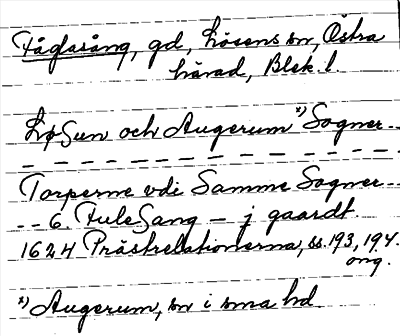 Fågelsång, gd, Lösens sn, Östra
härad, Blek. l.
LøSun och Augerum x) Sogner --
Torperne vdi Samme Sogner --
-- 6 FuleSang – j gaardt
1624 Prästrelationerna, ss. 193, 194.
ong.
x) Augerum, sn i sma hd